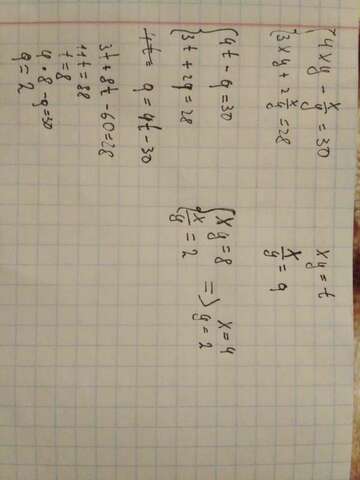 4xy - x/y = 30
3xy + 2 x/y = 28
xy = t
x/y = q
4t - q = 30
3t + 2q = 28
q = 4t - 30
3t + 8t - 60 = 28
11t = 88
t = 8
4 · 8 - q = 30
q = 2
xy = 8
x/y = 2
=> x = 4
y = 2